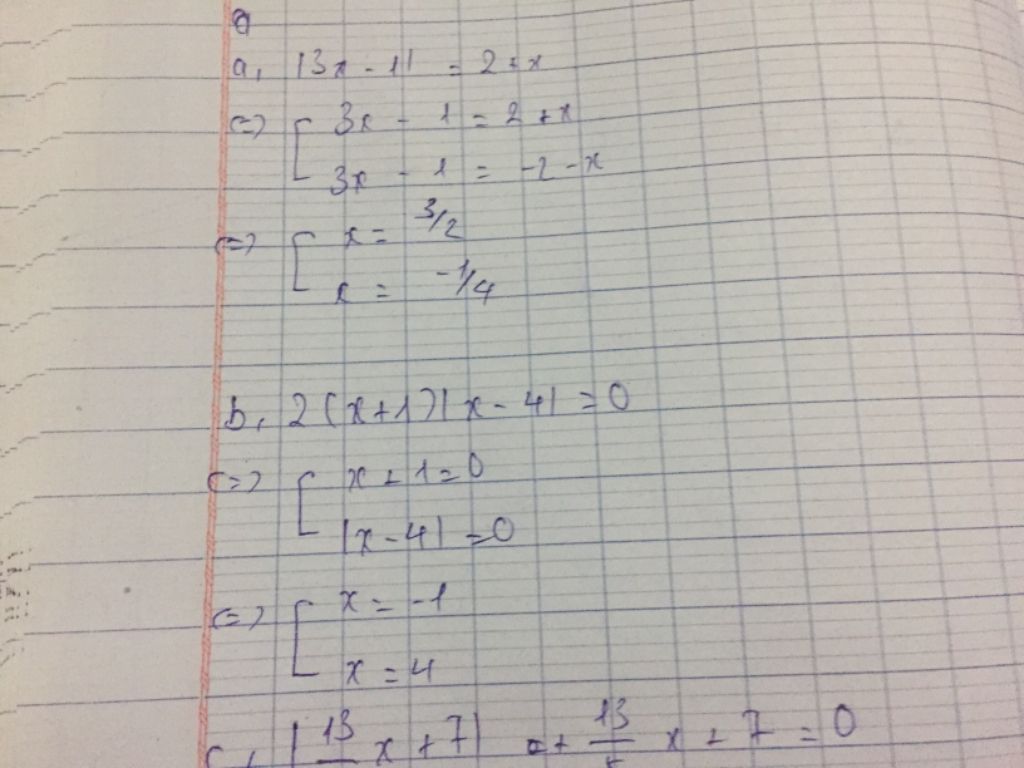 a, |3x - 1| = 2 + x
<=> [ 3x - 1 = 2 + x
3x - 1 = -2 - x
<=> [ x = 3/2
x = -1/4
b, 2(x+1)|x - 4| = 0
<=> [ x + 1 = 0
|x - 4| = 0
<=> [ x = -1
x = 4
c, |13 x + 7| + 13 x + 7 = 0